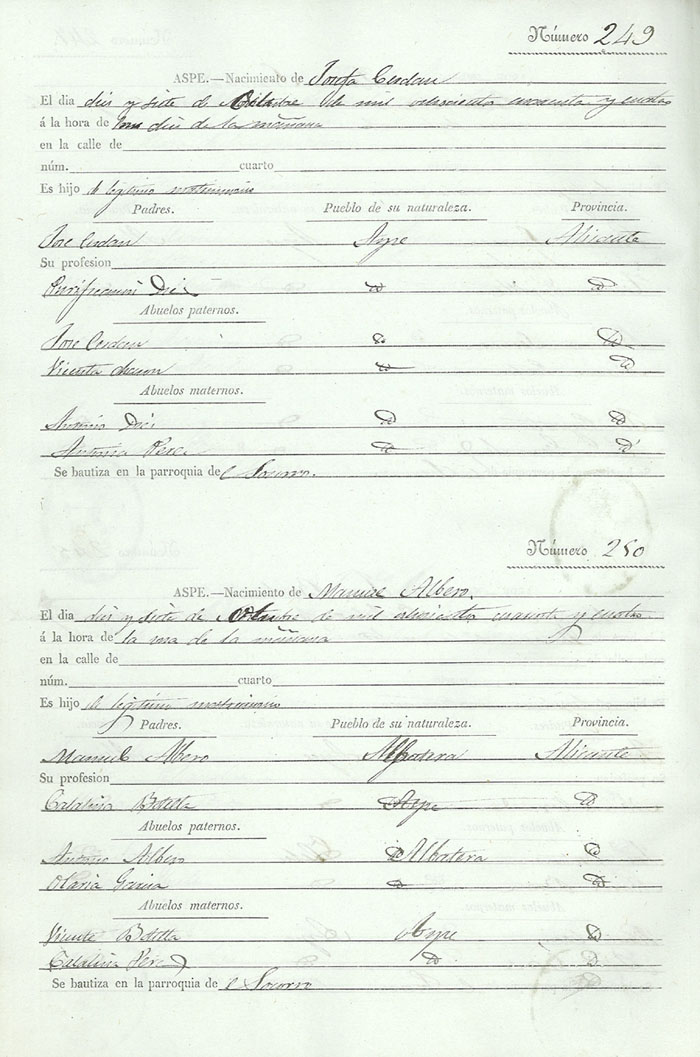 Número 249
ASPE.—Nacimiento de Josefa Cerdan
El dia diez y siete de Octubre de mil ochocientos cuarenta y cuatro
á la hora de las diez de la mañana
en la calle de
núm. cuarto
Es hijo de legitimo matrimonio
Padres. Pueblo de su naturaleza. Provincia.
Jose Cerdan Aspe Alicante
Su profesion
Purificacion Diez
Abuelos paternos.
Jose Cerdan
Vicenta
Abuelos maternos.
Antonio Diez
Antonia Perez
Se bautiza en la parroquia del Socorro.
Número 250
ASPE.—Nacimiento de Manuel Albero.
El dia diez y siete de Octubre de mil ochocientos cuarenta y cuatro
á la hora de la una de la mañana
en la calle de
núm. cuarto
Es hijo de legitimo matrimonio
Padres. Pueblo de su naturaleza. Provincia.
Manuel Albero Albatera Alicante
Su profesion
Catalina Botella Aspe
Abuelos paternos.
Antonio Albero Albatera
Maria Garcia
Abuelos maternos.
Vicente Botella Aspe
Catalina Perez
Se bautiza en la parroquia de el Socorro